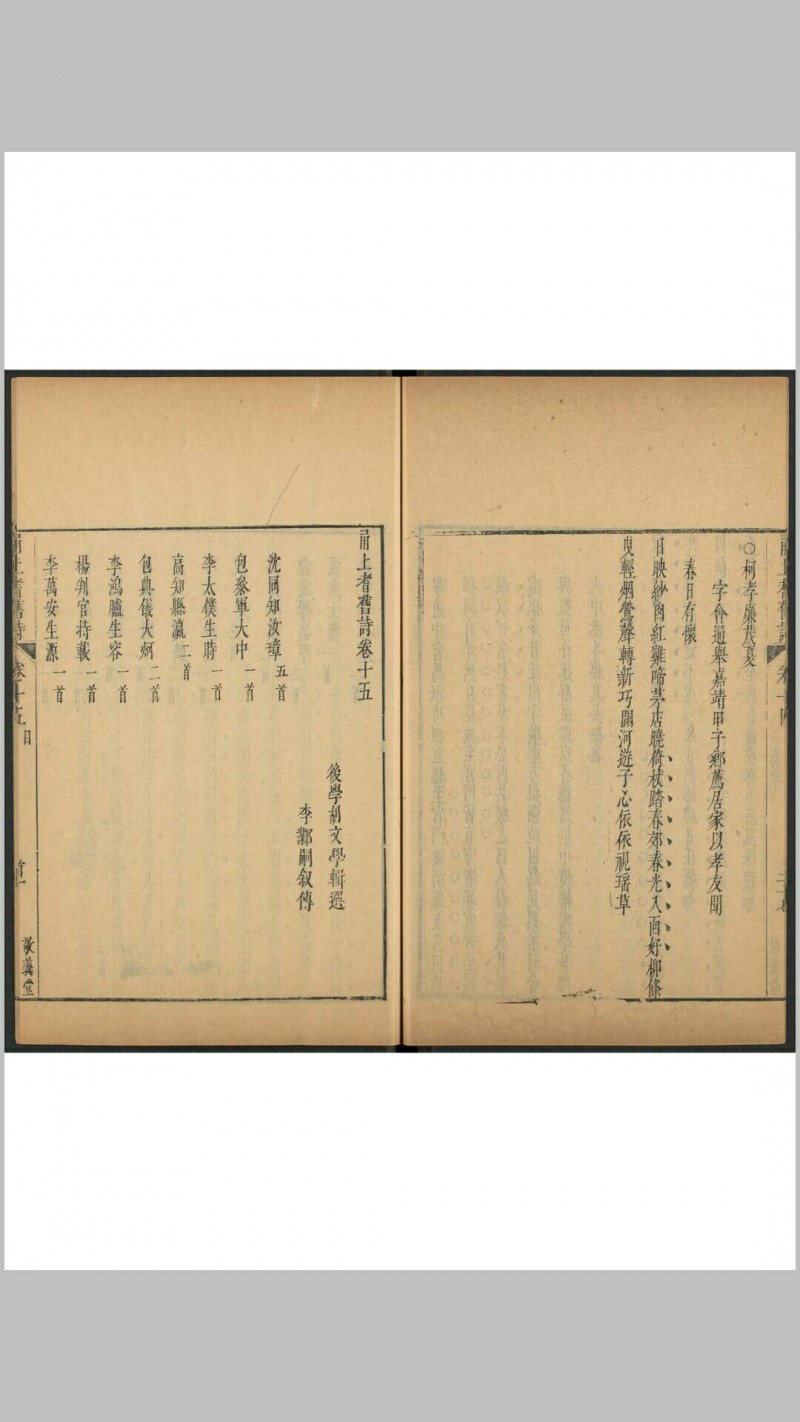 ○柯孝廉茂夏
字會通舉嘉靖甲子鄉薦居家以孝友聞
春日有懷
日映紗肉紅雞啼茅店曉倚杖踏春郊春光入面好柳條
曳輕烟鶯聲轉新巧關河遊子心依依視瑶草
甬上耆舊詩卷十五
後學胡文學輯選
李鄴嗣叙傳
沈同知汝璋 五首
包參軍大中 一首
李太僕生時 一首
高知縣瀛 二首
包典儀大炣 二首
李鴻臚生容 一首
楊判官持載 一首
李萬安生源 一首
甬上耆舊詩 卷十五 目 首一 敬義堂